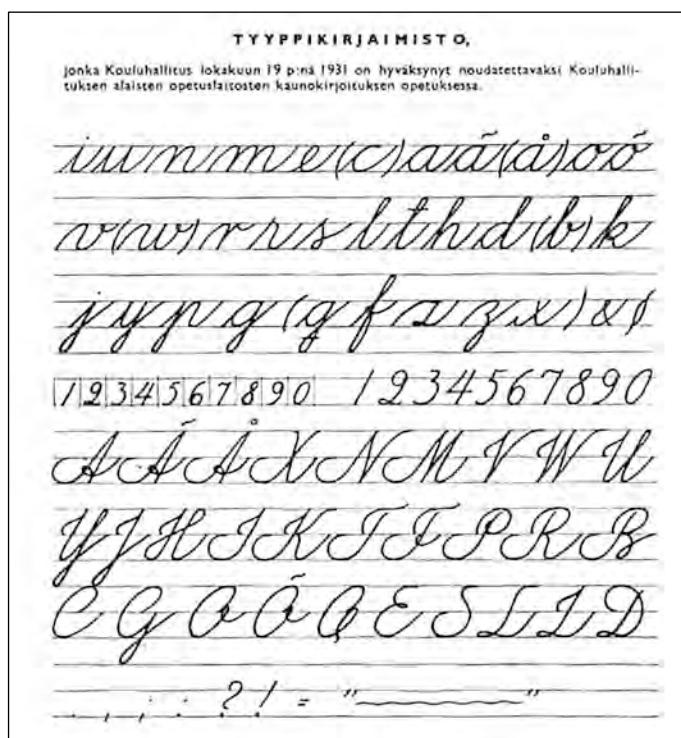 TYYPPIKIRJAIMISTO,
jonka Kouluhallitus lokakuun 19 p:nä 1931 on hyväksynyt noudatettavaksi Kouluhalli-
tuksen alaisten opetuslaitosten kaunokirjoituksen opetuksessa.
i u n m e (c) a ä (å) o ö
v (w) r r s l t h d (b) k
j y p g (q f z z x) &
1 2 3 4 5 6 7 8 9 0 1 2 3 4 5 6 7 8 9 0
A Ä Å X N M V W U
Y J H I K T F P R B
C G O Ö Q E S L D
. , ; : ? ! = " "